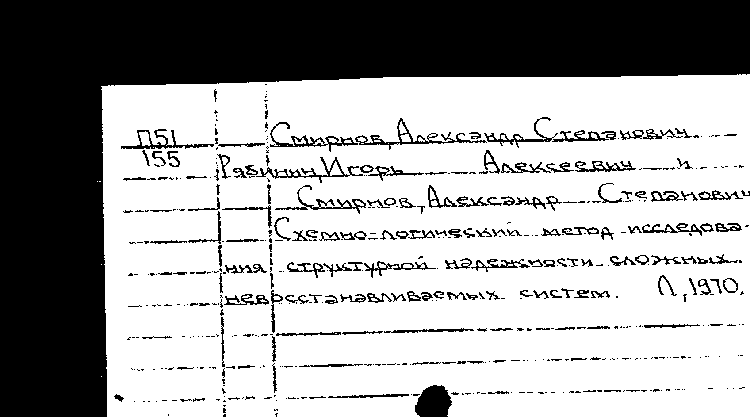 П51 Смирнов, Александр Степанович.
155 Рябинин, Игорь Алексеевич и
Смирнов, Александр Степанович
Схемно-логический метод исследова-
ния структурной надежности сложных
невосстанавливаемых систем. Л, 1970.